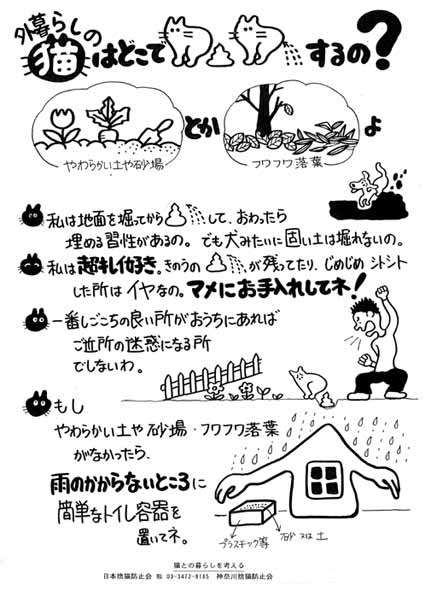 外暮らしの
猫はどこでするの?
とか
よ
やわらかい土や砂場
フワフワ落葉
私は地面を掘ってからして、おわったら
埋める習性があるの。でも犬みたいに固い土は掘れないの。
私は超キレイ好き。きのうのが残ってたり、じめじめ シトシト
した所はイヤなの。マメにお手入れしてネ!
一番しごこちの良い所がおうちにあれば
ご近所の迷惑になる所
でしないわ。
もし
やわらかい土や砂場・フワフワ落葉
がなかったら、
雨のかからないところに
簡単なトイレ容器を
置いてネ。
プラスチック等
砂又は土
猫との暮らしを考える
日本捨猫防止会 ℡ 03-3472-8185 神奈川捨猫防止会